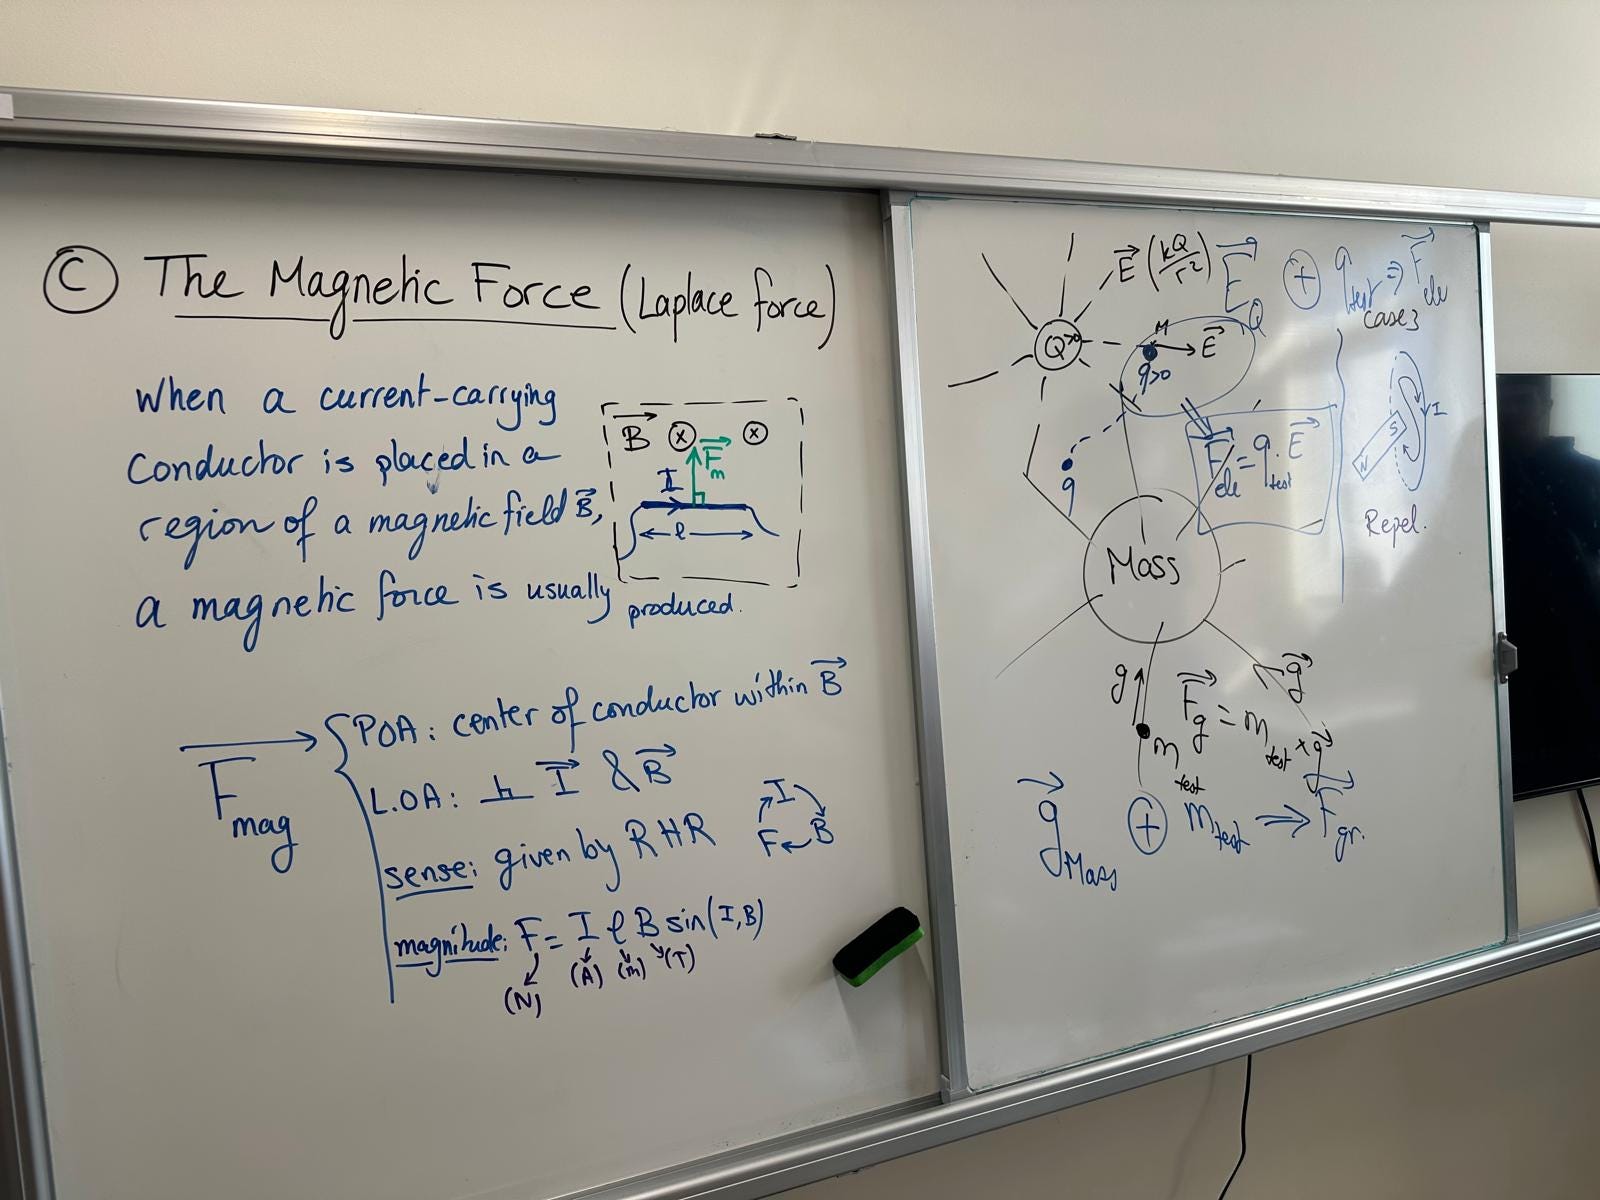 C The Magnetic Force (Laplace force)
When a current-carrying
conductor is placed in a
region of a magnetic field B,
a magnetic force is usually produced.
B x x
I Fm
l
Fmag
POA: center of conductor within B
L.OA: ⊥ I & B
sense: given by RHR
I
F B
magnitude: F = I l B sin(I,B)
(N) (A) (m) (T)
E (kQ/r²) EQ + qtest ⇒ Fele
case 3
Q>0 M E
q>0
q
Fele = qtest . E
S
N
I
Repel.
Mass
g
g
m test
Fg = mtest × g
gMass + mtest ⇒ Fgr.